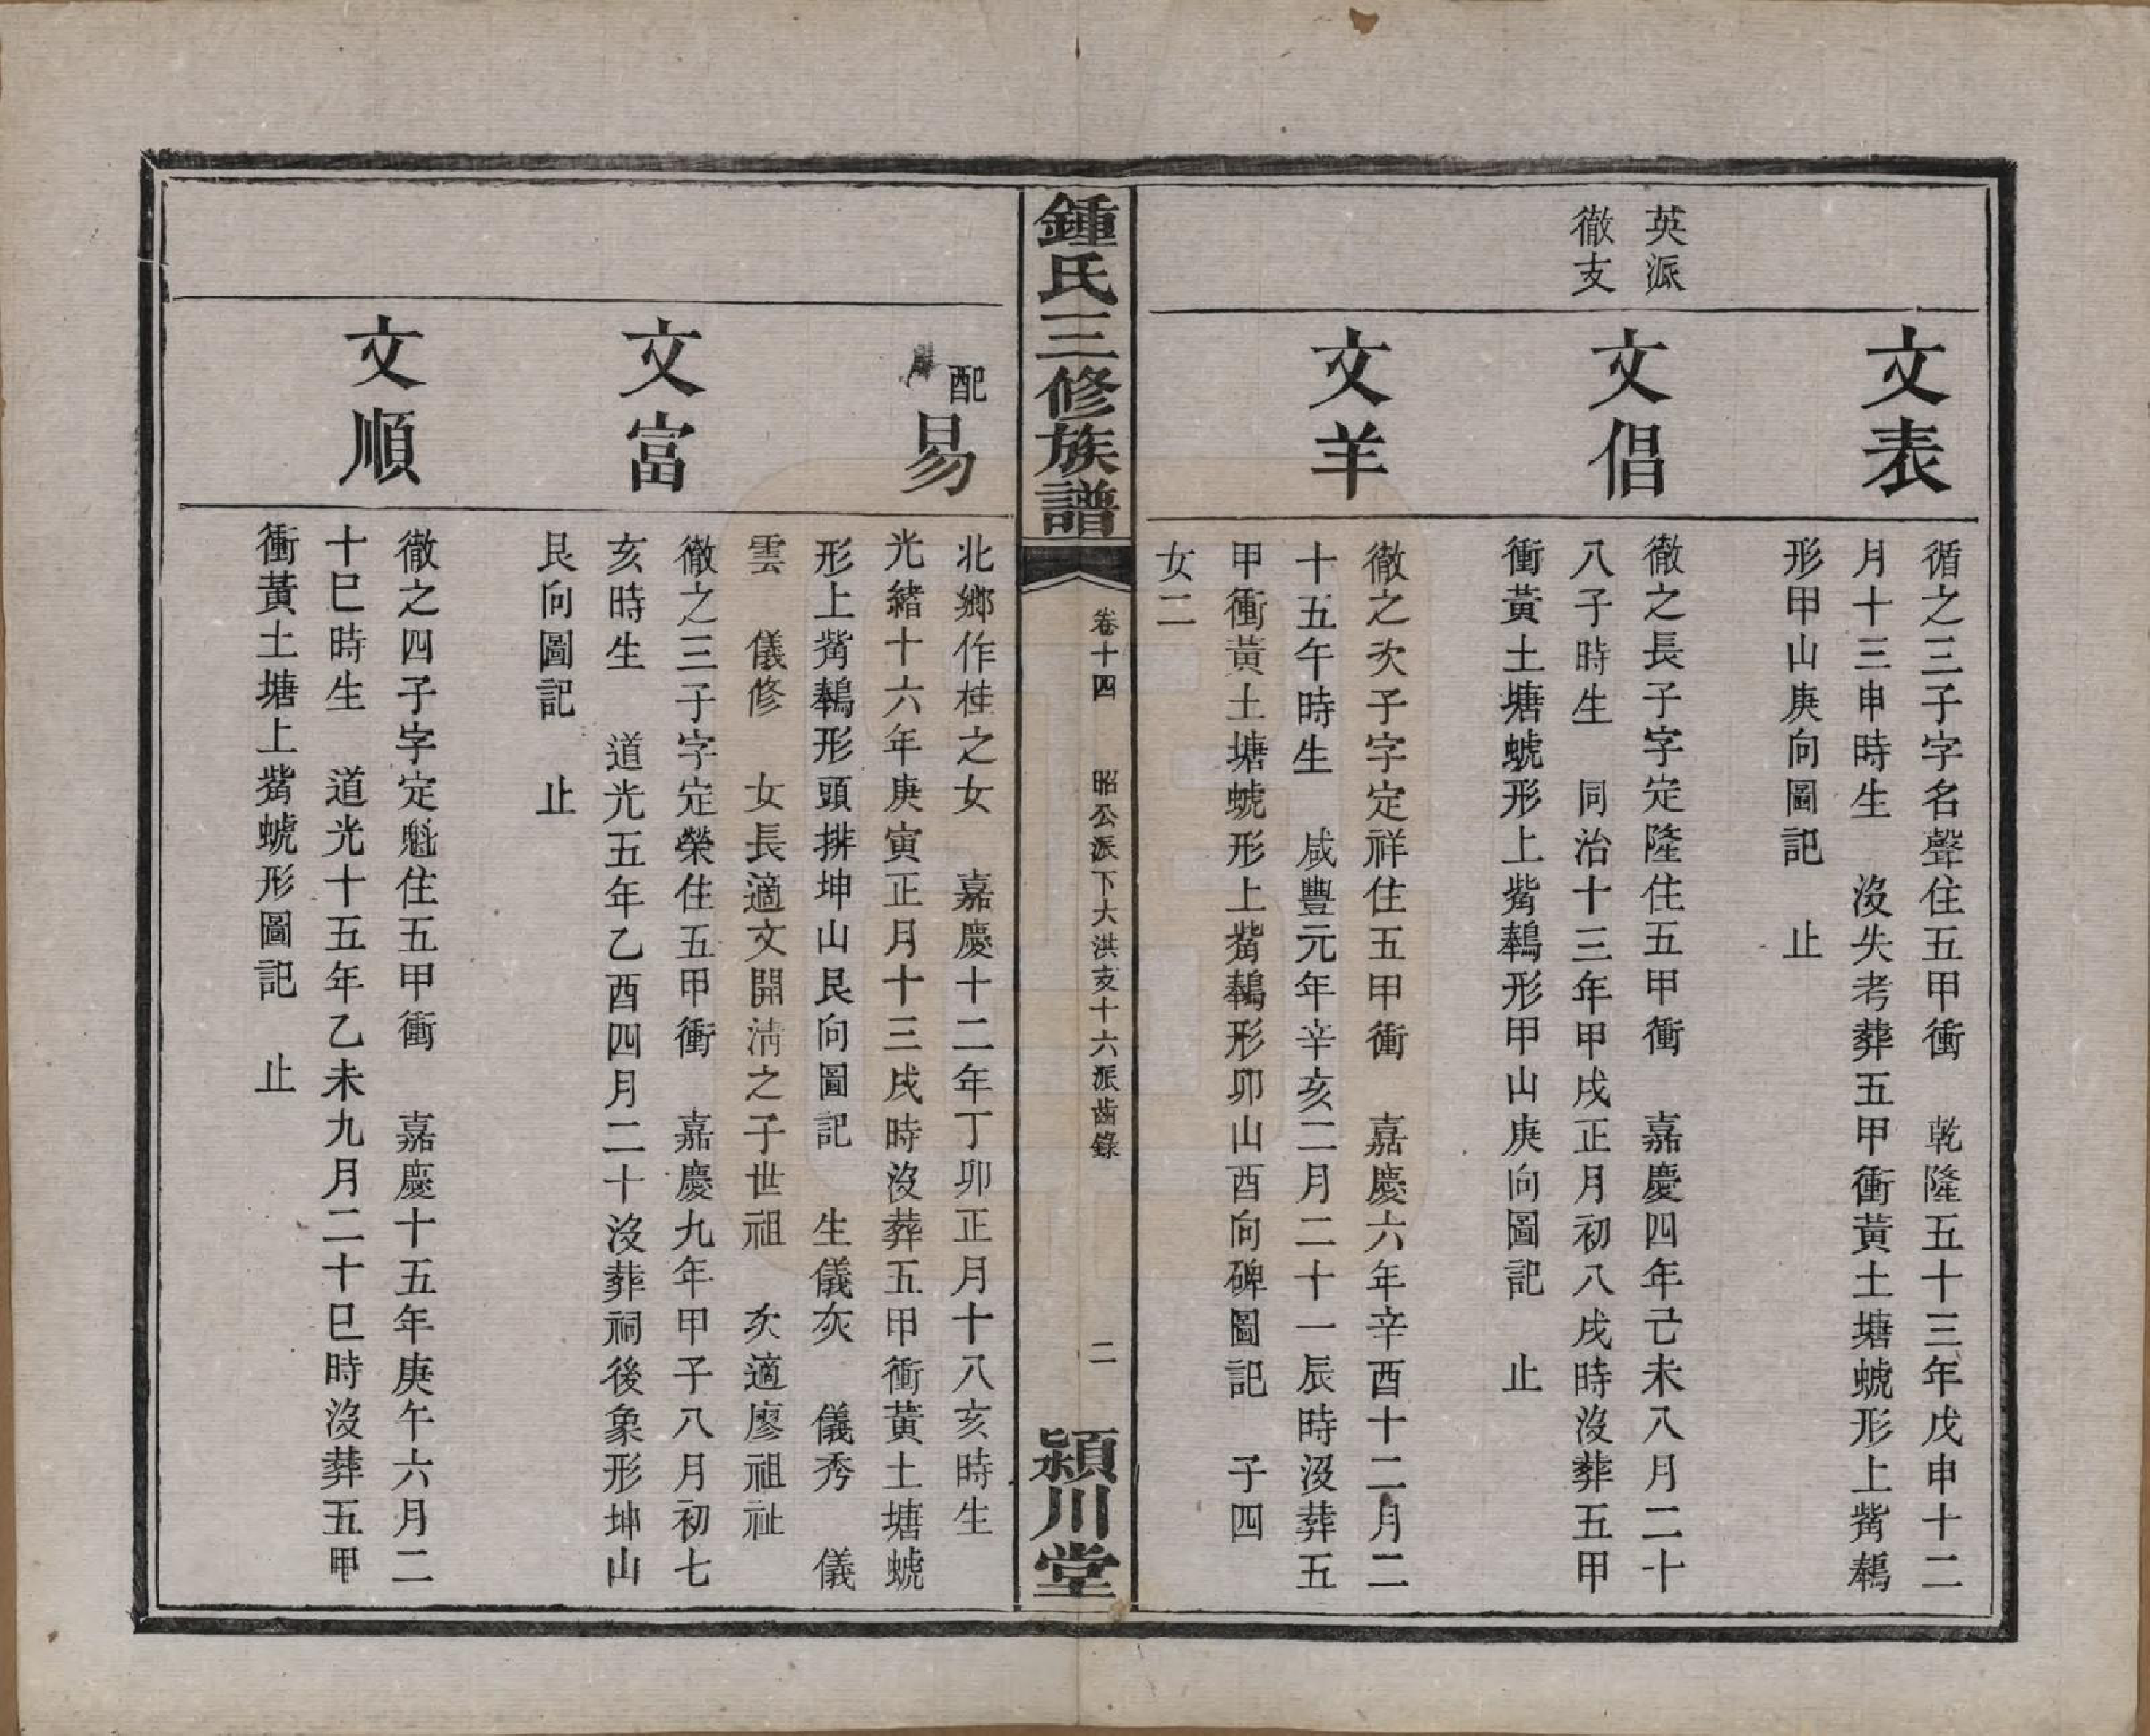 英派
徹支
文表
循之三子字名聲住五甲衝　乾隆五十三年戊申十二
月十三申時生　沒失考葬五甲衝黃土塘螔形上觜鶈
形甲山庚向圖記　止
文倡
徹之長子字定隆住五甲衝　嘉慶四年己未八月二十
八子時生　同治十三年甲戌正月初八戌時沒葬五甲
衝黃土塘螔形上觜鶈形甲山庚向圖記　止
文羊
徹之次子字定祥住五甲衝　嘉慶六年辛酉十二月二
十五午時生　咸豐元年辛亥二月二十一辰時沒葬五
甲衝黃土塘螔形上觜鶈形卯山酉向碑圖記　子四
女二
鍾氏三修族譜
卷十四　昭公派下大洪支十六派齒錄　二
潁川堂
配易
北鄉作桂之女　嘉慶十二年丁卯正月十八亥時生
光緒十六年庚寅正月十三戌時沒葬五甲衝黃土塘螔
形上觜鶈形頭排坤山艮向圖記　生儀灰　儀秀　儀
雲　儀修　女長適文開淸之子世祖　次適廖祖祉
文富
徹之三子字定榮住五甲衝　嘉慶九年甲子八月初七
亥時生　道光五年乙酉四月二十沒葬祠後象形坤山
艮向圖記　止
文順
徹之四子字定魁住五甲衝　嘉慶十五年庚午六月二
十巳時生　道光十五年乙未九月二十巳時沒葬五甲
衝黃土塘上觜螔形圖記　止